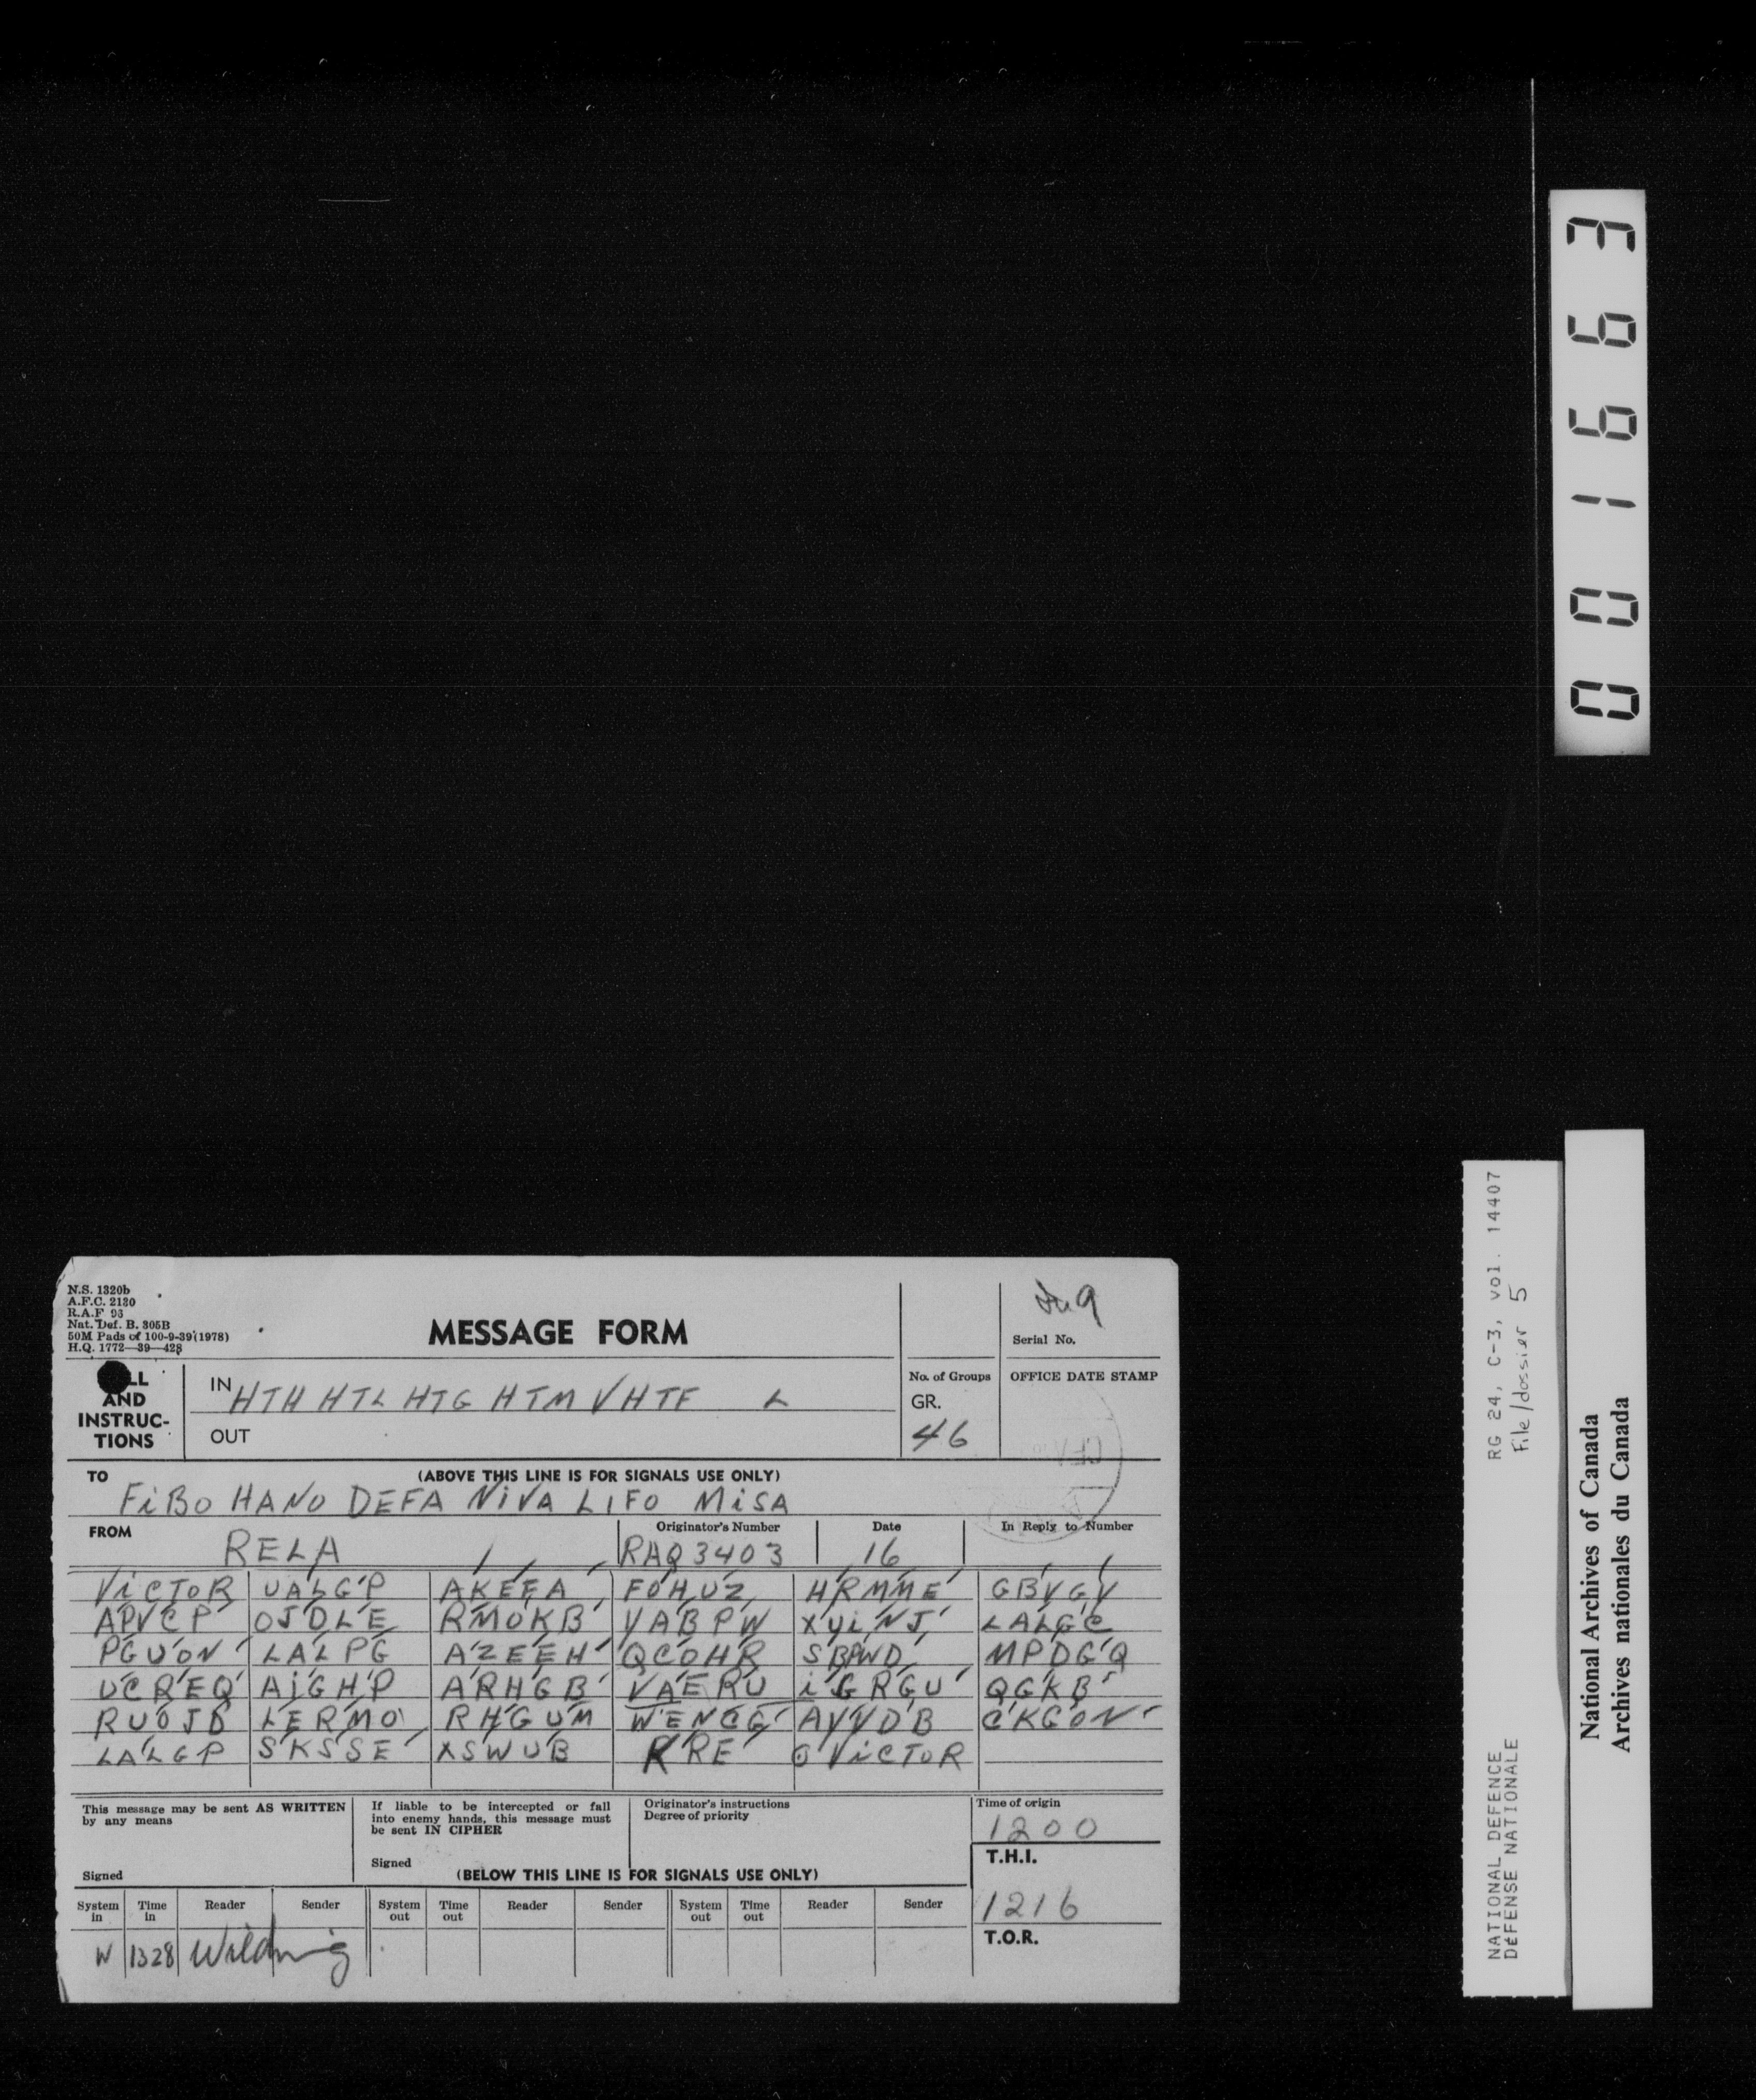 001663
N.S. 1320b
A.F.C. 2130
R.A.F 96
Nat. Def. B. 305B
50M Pads of 100-9-39 (1978)
H.Q. 1772—39—428
MESSAGE FORM
9
Serial No.
LL
AND
INSTRUC-
TIONS
IN HTH HTL HTG HTM VHTF L
OUT
No. of Groups
GR.
46
OFFICE DATE STAMP
TO
(ABOVE THIS LINE IS FOR SIGNALS USE ONLY)
FiBO HANO DEFA NiVA LIFO MiSA
FROM
RELA
Originator's Number
RAQ3403
Date
16
In Reply to Number
ViCTOR UALGP AKEEA FOHUZ HRMME GBVGV
APVCP OJDLE RMOKB VABPW XYiNJ LALGC
PGUON LALPG AZEEH QCOHR SBPWD MPDGQ
UCREQ AiGHP ARHGB VAERU iGRGU QGKB
RUOJD LERMO RHGUM WENCG AVVDB CKGON
LALGP SKSSE XSWUB RRE O ViCTOR
This message may be sent AS WRITTEN
by any means
Signed
If liable to be intercepted or fall
into enemy hands, this message must
be sent IN CIPHER
Signed
Originator's instructions
Degree of priority
Time of origin
1200
T.H.I.
(BELOW THIS LINE IS FOR SIGNALS USE ONLY)
System in Time in Reader Sender System out Time out Reader Sender System out Time out Reader Sender
1216
T.O.R.
W 1328 Wilding
RG 24, C-3, vol. 14407
File/dossier 5
NATIONAL DEFENCE
DÉFENSE NATIONALE
National Archives of Canada
Archives nationales du Canada